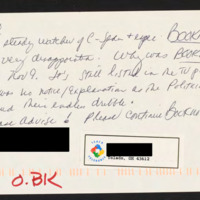 steady watcher of C-Span + eager BOOKN
very disappointed. Why was BOOK
Nov 9. It's still listed in the TV g
was no notice/Explanation as the Politic
and their endless dribble.
ase advise & Please continue BOOKN
Toledo, OH 43613
O.BK